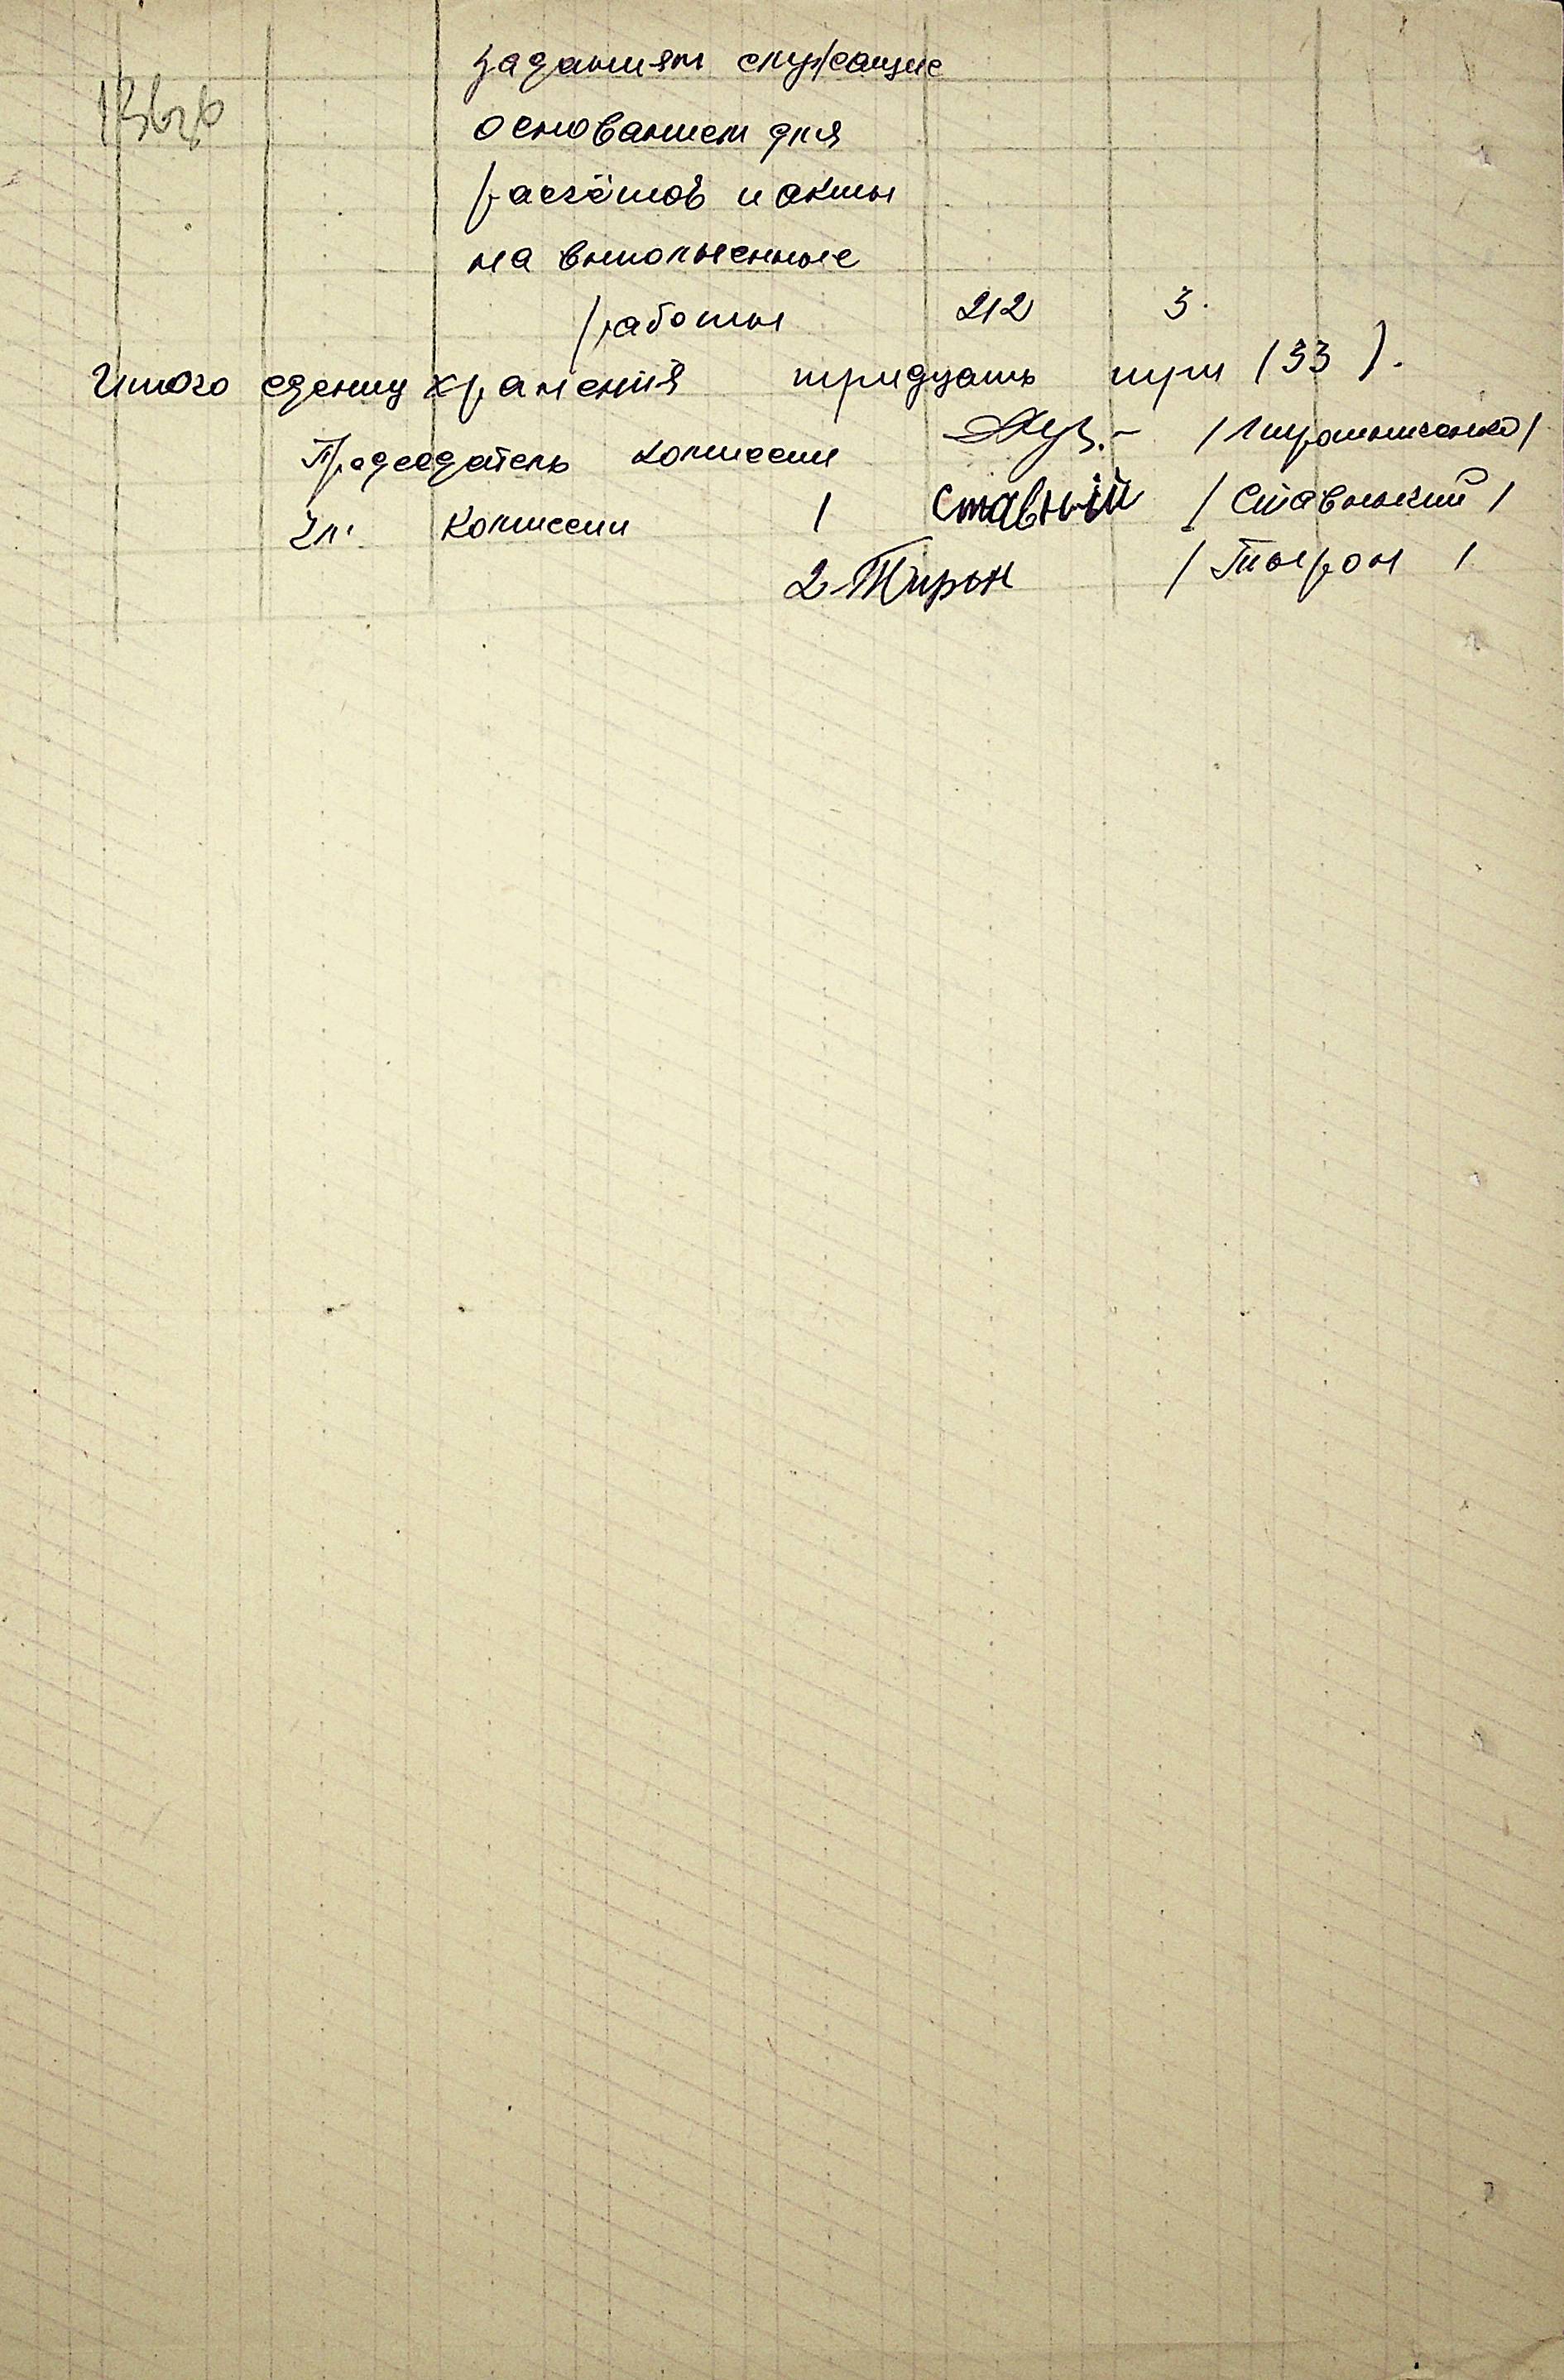 заданиям служащие
основанием для
расчётов и акты
на выполненные
работы 212 3.
Итого едениц хранения тридцать три (33).
Председатель комиссии
Чл. комиссии 1 Ставный / Ставнький /
2 Тирон / Тырон /